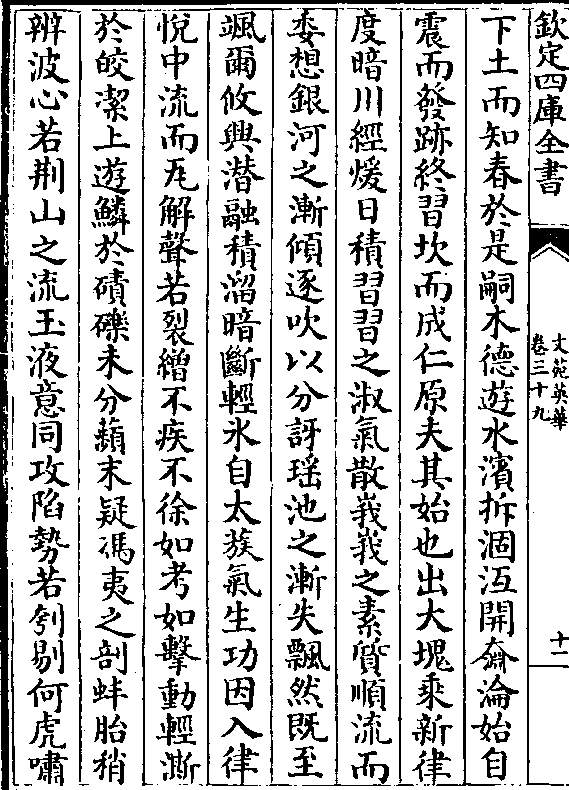 欽定四庫全書
文苑英華
卷三十九
十二
下土而知春於是嗣木德遊水濱拆涸冱開奫淪始自
震而發跡終習坎而成仁原夫其始也出大塊乘新律
度暗川經煖日積習習之淑氣散峩峩之素質順流而
委想銀河之漸傾逐吹以分訝瑶池之漸失飄然既至
颯爾攸興潜融積溜暗斷輕氷自太蔟氣生功因入律
悅中流而瓦解聲若裂繒不疾不徐如考如擊動輕澌
於皎潔上遊鱗於磧礫未分蘋末疑馮夷之剖蚌胎稍
辨波心若荆山之流玉液意同攻陷勢若刳剔何虎嘯